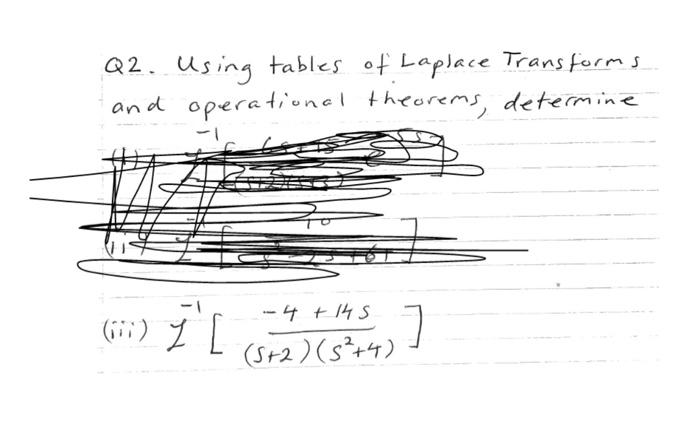 Q2. Using tables of Laplace Transforms
and operational theorems, determine
(iii) ℒ⁻¹ [ (-4 + 14s) / ((s+2)(s²+4)) ]